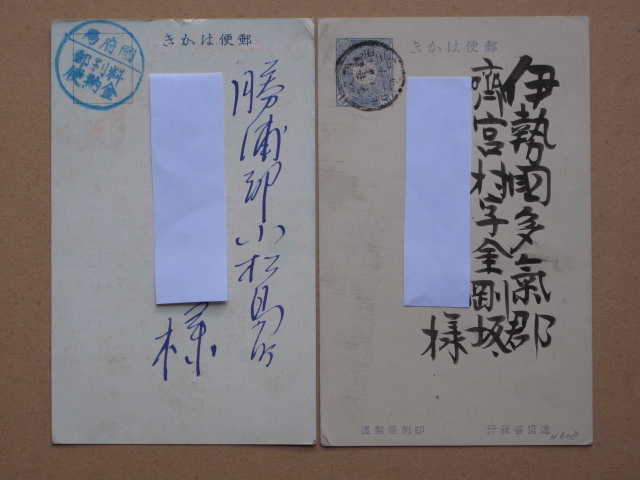 郵便はかき
國府局
料金
別納
郵便
勝浦郡小松島町
様
郵便はかき
伊勢國多氣郡
齊宮村字金剛坂
様
逓信省發行
印刷局製造